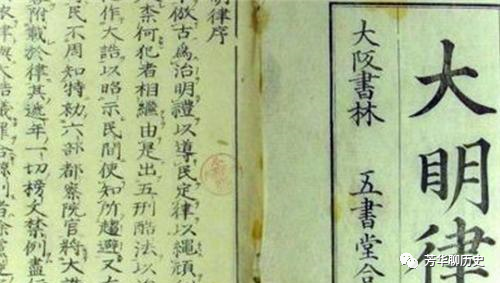 大明律
大阪書林 五書堂合
明律序
倣古爲治明禮以導民定律以繩頑
禁何犯者相繼由是出五刑酷法以治
作大誥以昭示民間使知所趨避又
民不周知特勑六部都察院官將大誥
附載於律其遞年一切榜文禁例盡
律與大誥議罪
芳华聊历史